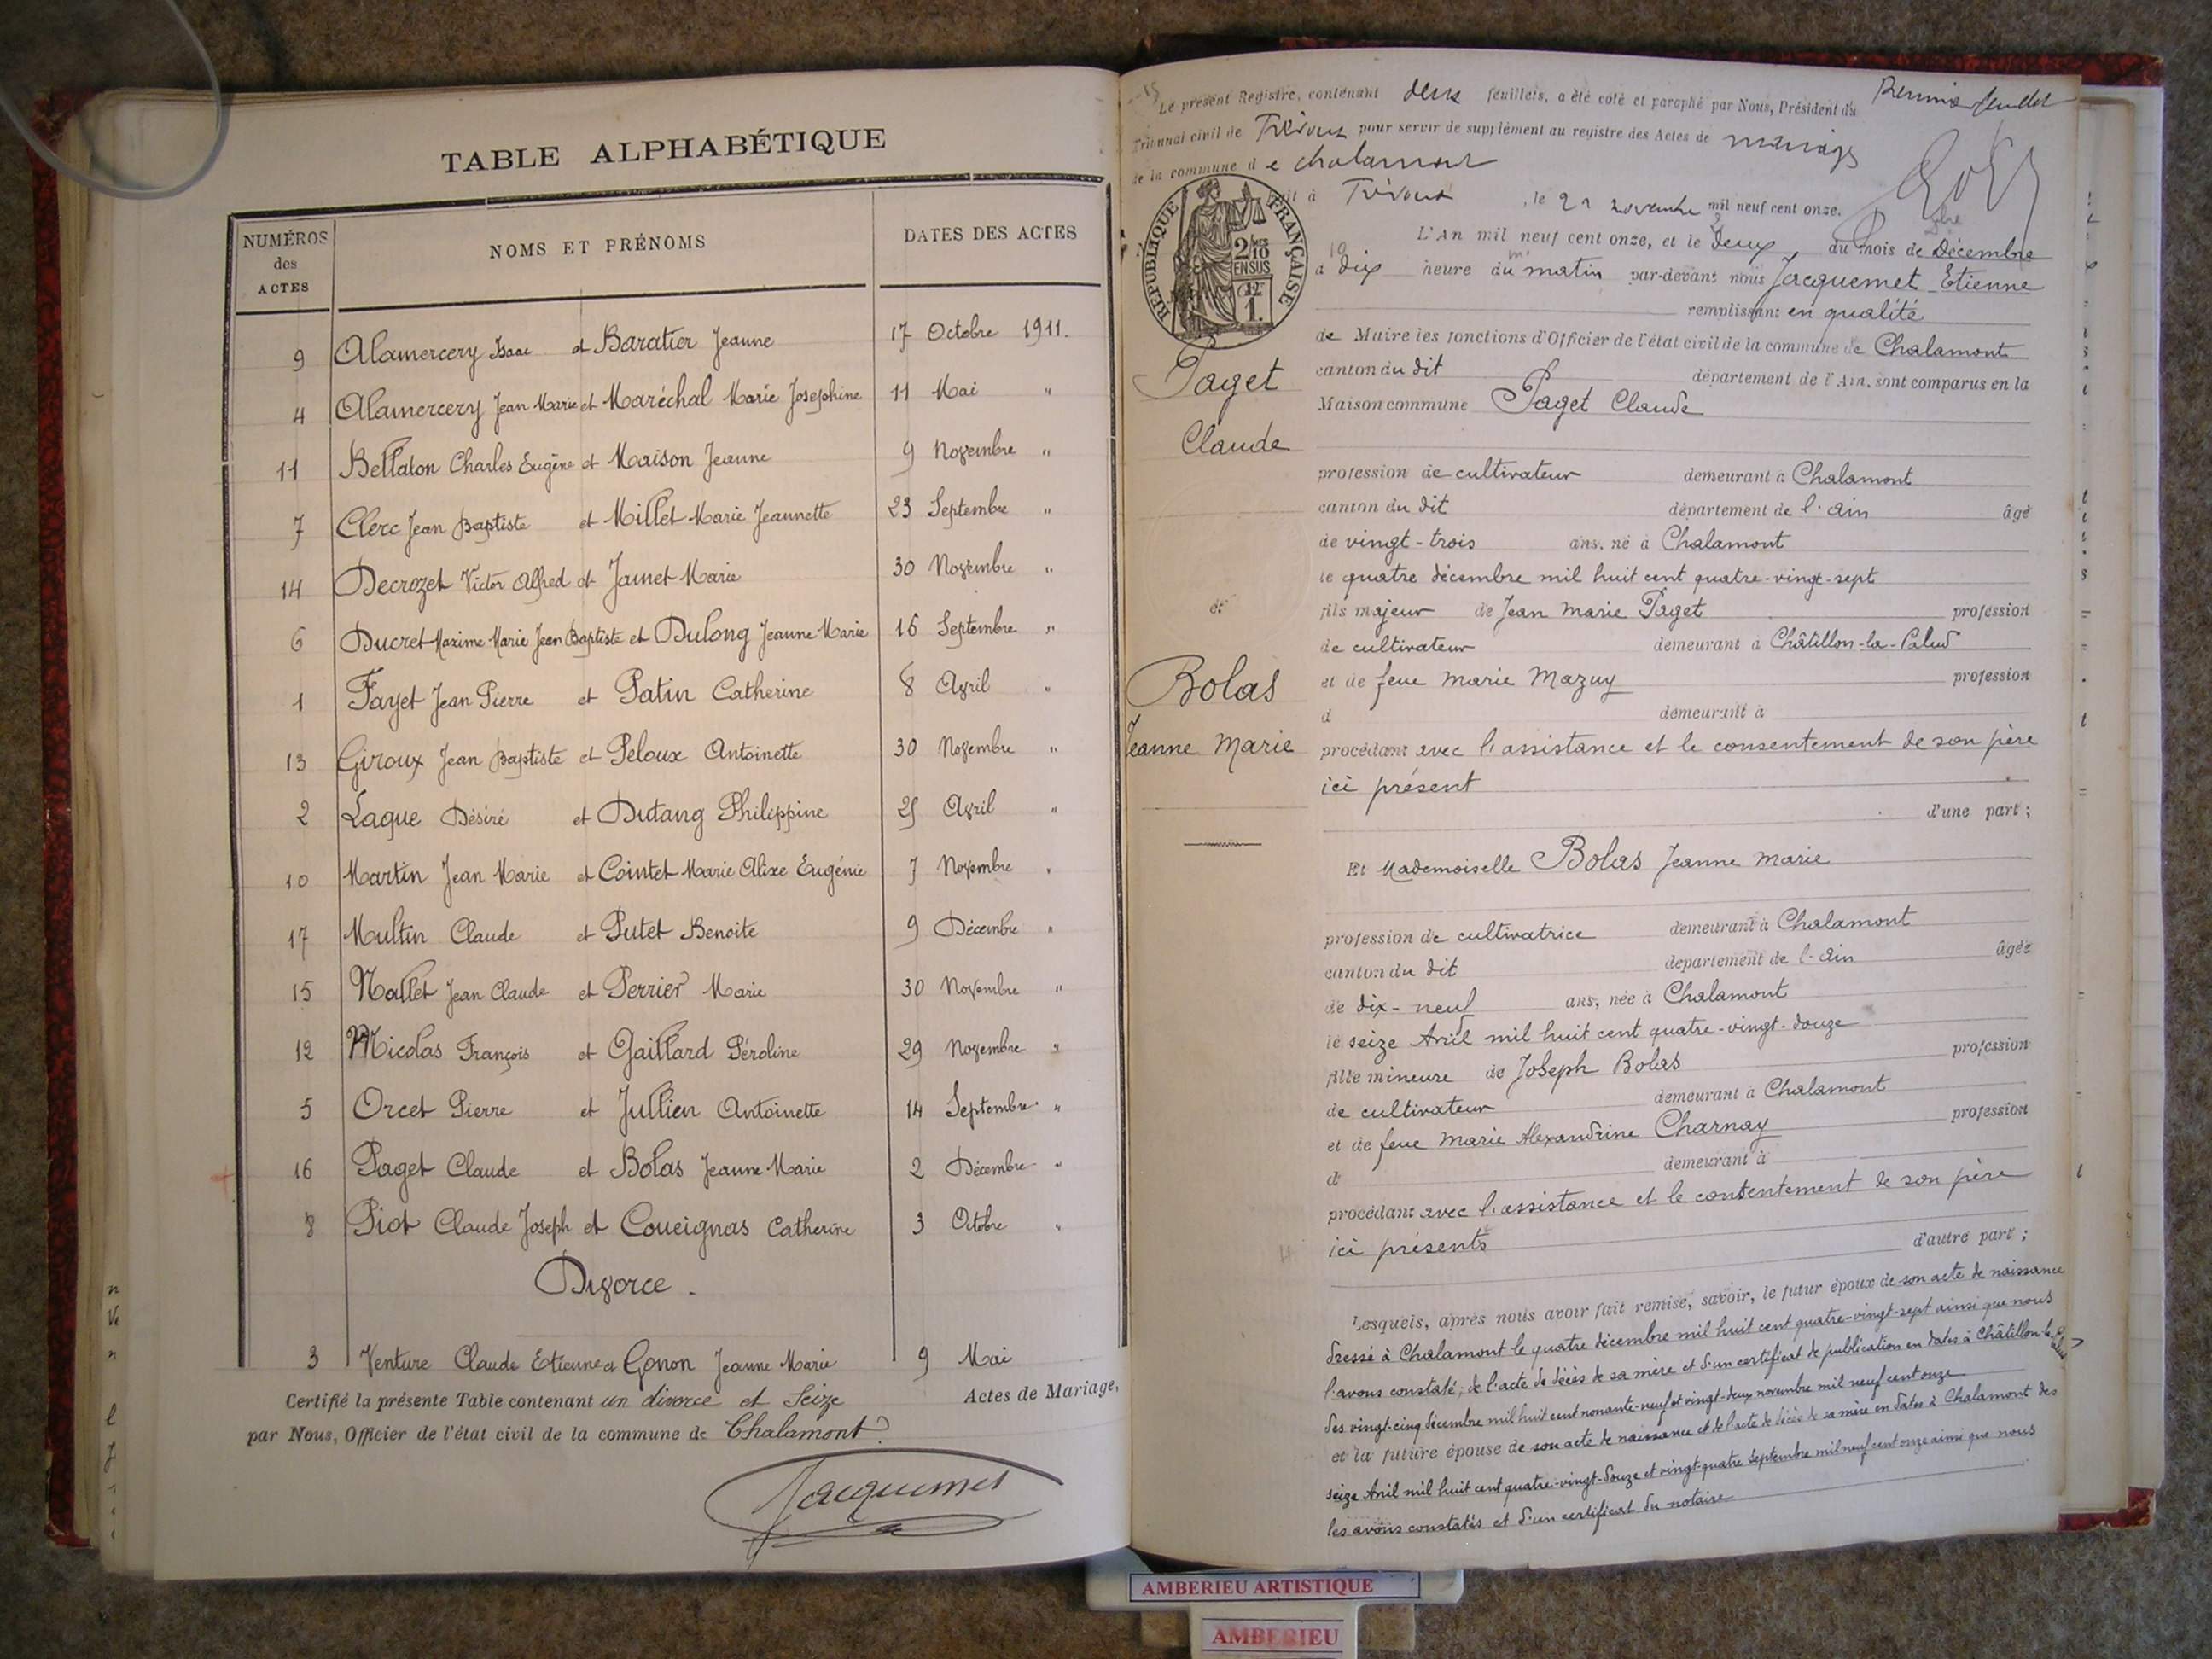 TABLE ALPHABÉTIQUE
NUMÉROS des ACTES
NOMS ET PRÉNOMS
DATES DES ACTES
9 Alamercery Isaac et Baratier Jeanne 17 Octobre 1911.
4 Alamercery Jean Marie et Maréchal Marie Josephine 11 Mai "
11 Bellaton Charles Eugène et Maison Jeanne 9 Novembre "
7 Clerc Jean Baptiste et Millet Marie Jeannette 23 Septembre "
14 Decrozet Victor Alfred et Jamet Marie 30 Novembre "
6 Ducret Maxime Marie Jean Baptiste et Dulong Jeanne Marie 16 Septembre "
1 Fayet Jean Pierre et Patin Catherine 8 Avril "
13 Giroux Jean Baptiste et Peloux Antoinette 30 Novembre "
2 Laque Désiré et Dutang Philippine 25 Avril "
10 Martin Jean Marie et Cointet Marie Alixe Eugénie 7 Novembre "
17 Multin Claude et Putet Benoite 9 Décembre "
15 Nallet Jean Claude et Perrier Marie 30 Novembre "
12 Nicolas François et Gaillard Péroline 29 Novembre "
5 Orcet Pierre et Jullien Antoinette 14 Septembre "
16 Paget Claude et Bolas Jeanne Marie 2 Décembre "
8 Piot Claude Joseph et Coueignas Catherine 3 Octobre "
Divorce.
3 Venture Claude Etienne et Gonon Jeanne Marie 9 Mai
Certifié la présente Table contenant un divorce et Seize Actes de Mariage,
par Nous, Officier de l'état civil de la commune de Chalamont
Jacquemet
Le présent Registre, contenant deux feuillets, a été coté et paraphé par Nous, Président du
Tribunal civil de Trévoux pour servir de supplément au registre des Actes de mariage
de la commune de Chalamont
Fait à Trévoux, le 21 novembre mil neuf cent onze.
RÉPUBLIQUE FRANÇAISE
2/10 EN SUS
1.
Paget
Claude
et
Bolas
Jeanne Marie
L'An mil neuf cent onze, et le deux du mois de Décembre
à dix heure du matin par-devant nous Jacquemet Etienne
remplissant en qualité
de Maire les fonctions d'Officier de l'état civil de la commune de Chalamont
canton du dit département de l'Ain, sont comparus en la
Maison commune Paget Claude
profession de cultivateur demeurant à Chalamont
canton du dit département de l'Ain âgé
de vingt-trois ans, né à Chalamont
le quatre décembre mil huit cent quatre-vingt-sept
fils majeur de Jean Marie Paget profession
de cultivateur demeurant à Châtillon-la-Palud
et de feue Marie Mazuy profession
d demeurant à
procédant avec l'assistance et le consentement de son père
ici présent
d'une part;
Et Mademoiselle Bolas Jeanne Marie
profession de cultivatrice demeurant à Chalamont
canton du dit département de l'Ain âgée
de dix-neuf ans, née à Chalamont
le seize Avril mil huit cent quatre-vingt-douze
fille mineure de Joseph Bolas profession
de cultivateur demeurant à Chalamont
et de feue Marie Alexandrine Charnay profession
d demeurant à
procédant avec l'assistance et le consentement de son père
ici présents
d'autre part;
Lesquels, après nous avoir fait remise, savoir, le futur époux de son acte de naissance
dressé à Chalamont le quatre décembre mil huit cent quatre-vingt-sept ainsi que nous
l'avons constaté; de l'acte de décès de sa mère et d'un certificat de publication en dates à Châtillon-la-Palud
des vingt-cinq décembre mil huit cent nonante-neuf et vingt-deux novembre mil neuf cent onze
et la future épouse de son acte de naissance et de l'acte de décès de sa mère en dates à Chalamont des
seize Avril mil huit cent quatre-vingt-douze et vingt-quatre Septembre mil neuf cent onze ainsi que nous
les avons constatés et d'un certificat du notaire
AMBERIEU ARTISTIQUE
AMBERIEU